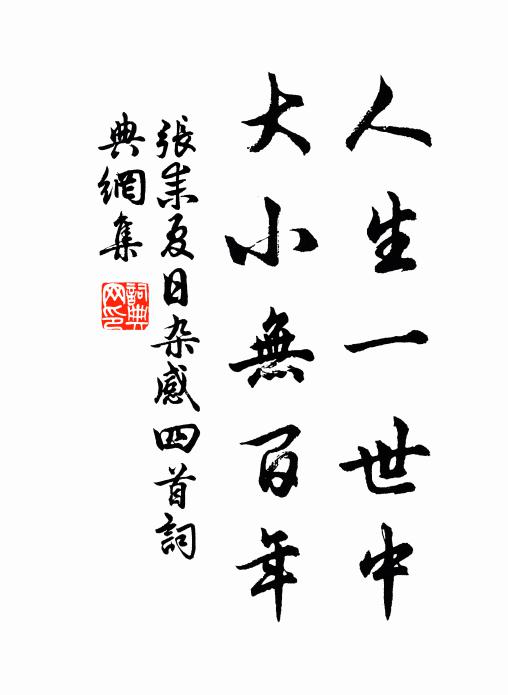 人生一世中
大小無百年
張耒夏日杂感四首詞
典網集
詞典
网印